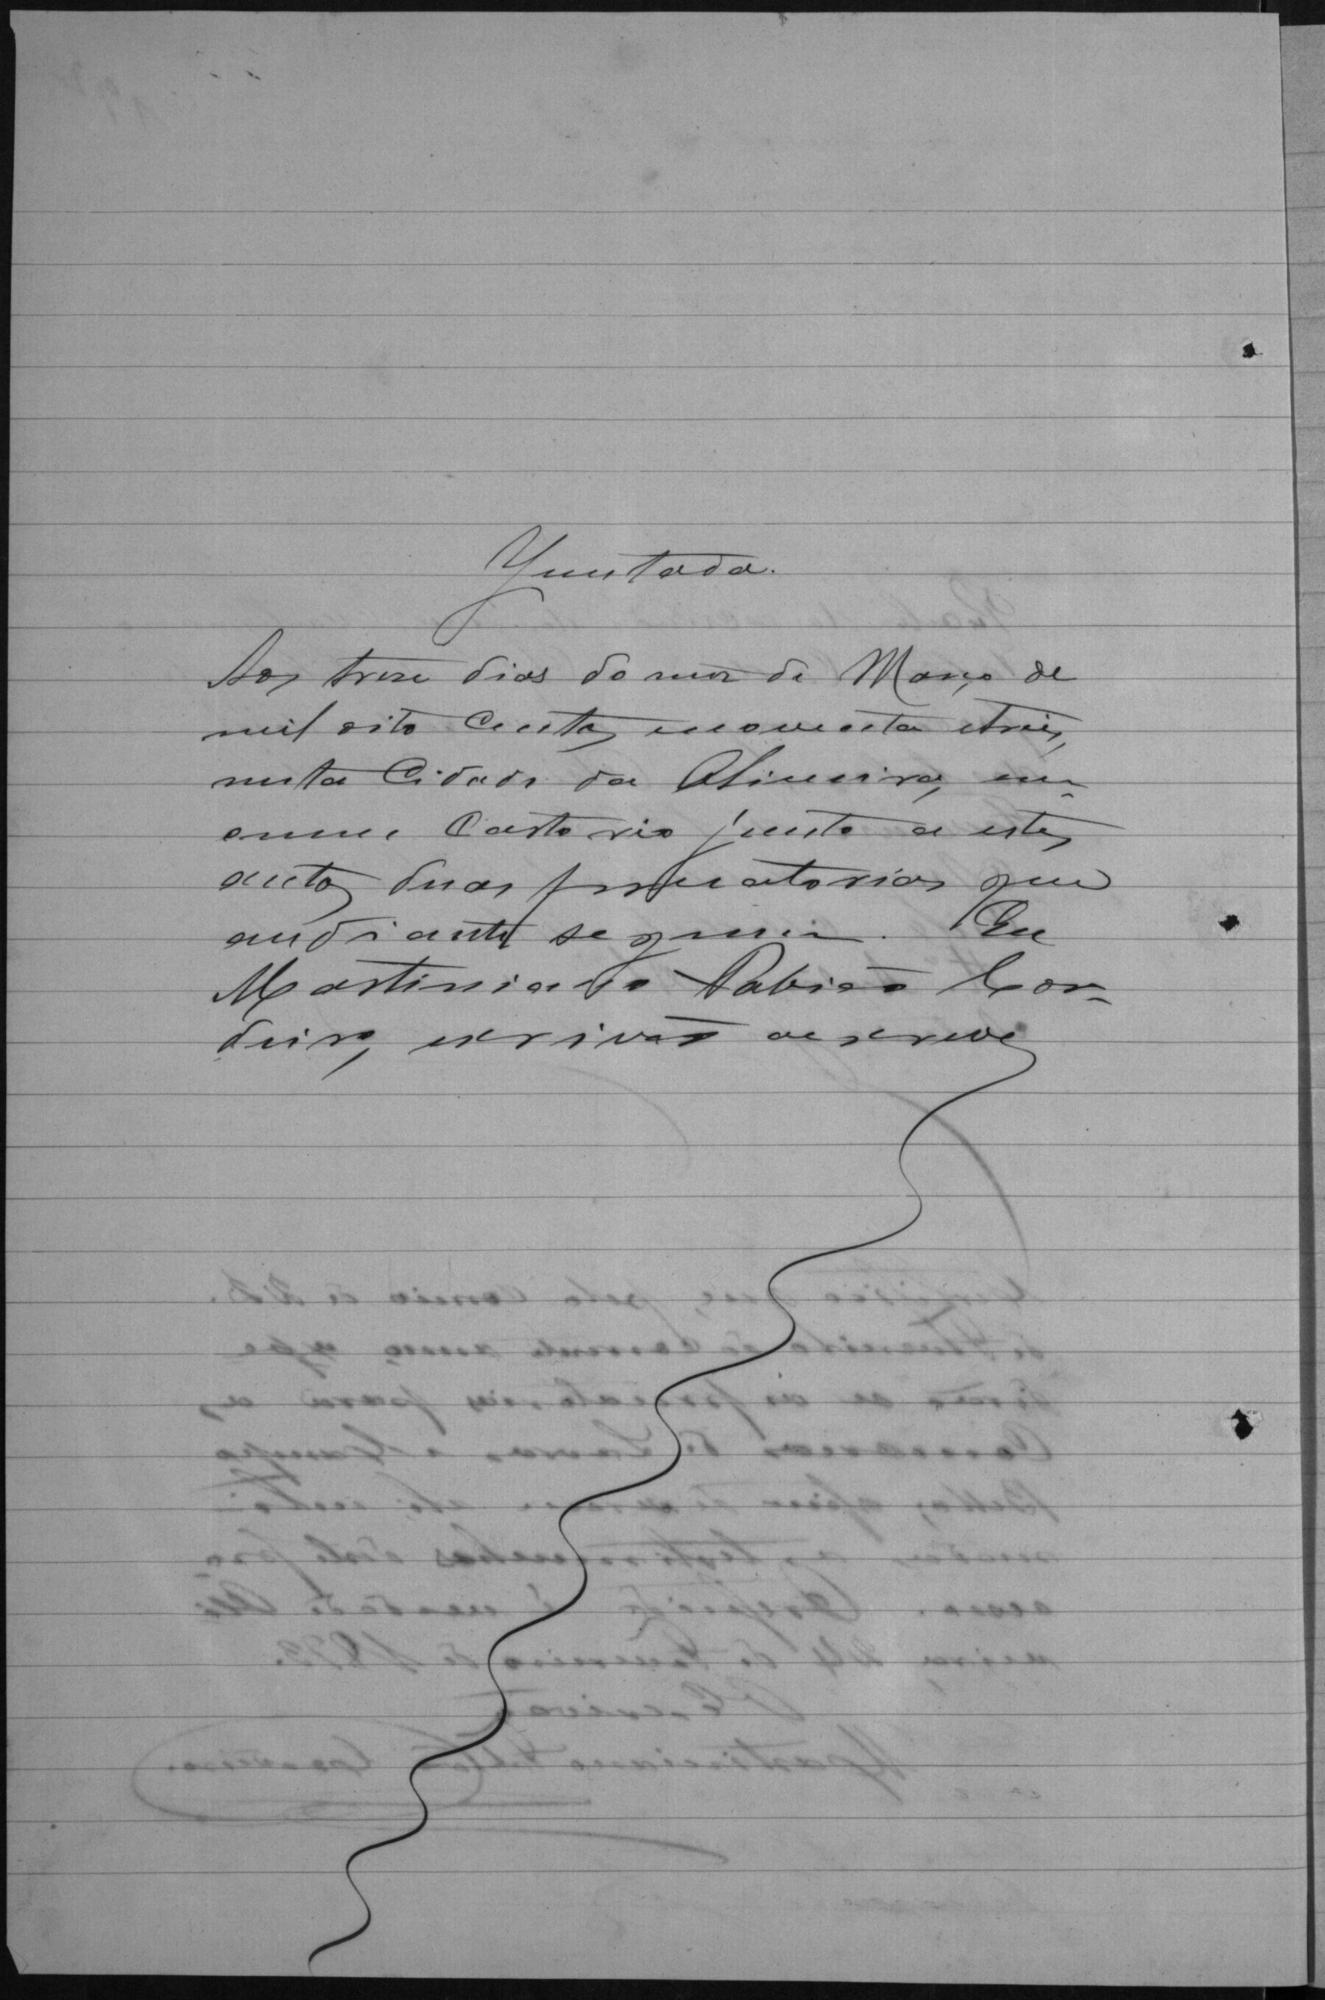 Juntada.
Aos treze dias do mez de Março de
mil oito centos enoventa etrêis,
nesta Cidade da Oliveira, em
omeu Cartorio junto a estes
autos duas precatorias que
audiante se guem. Eu
Martiniano Fabião Cor-
deiro, escrivão aescrevi